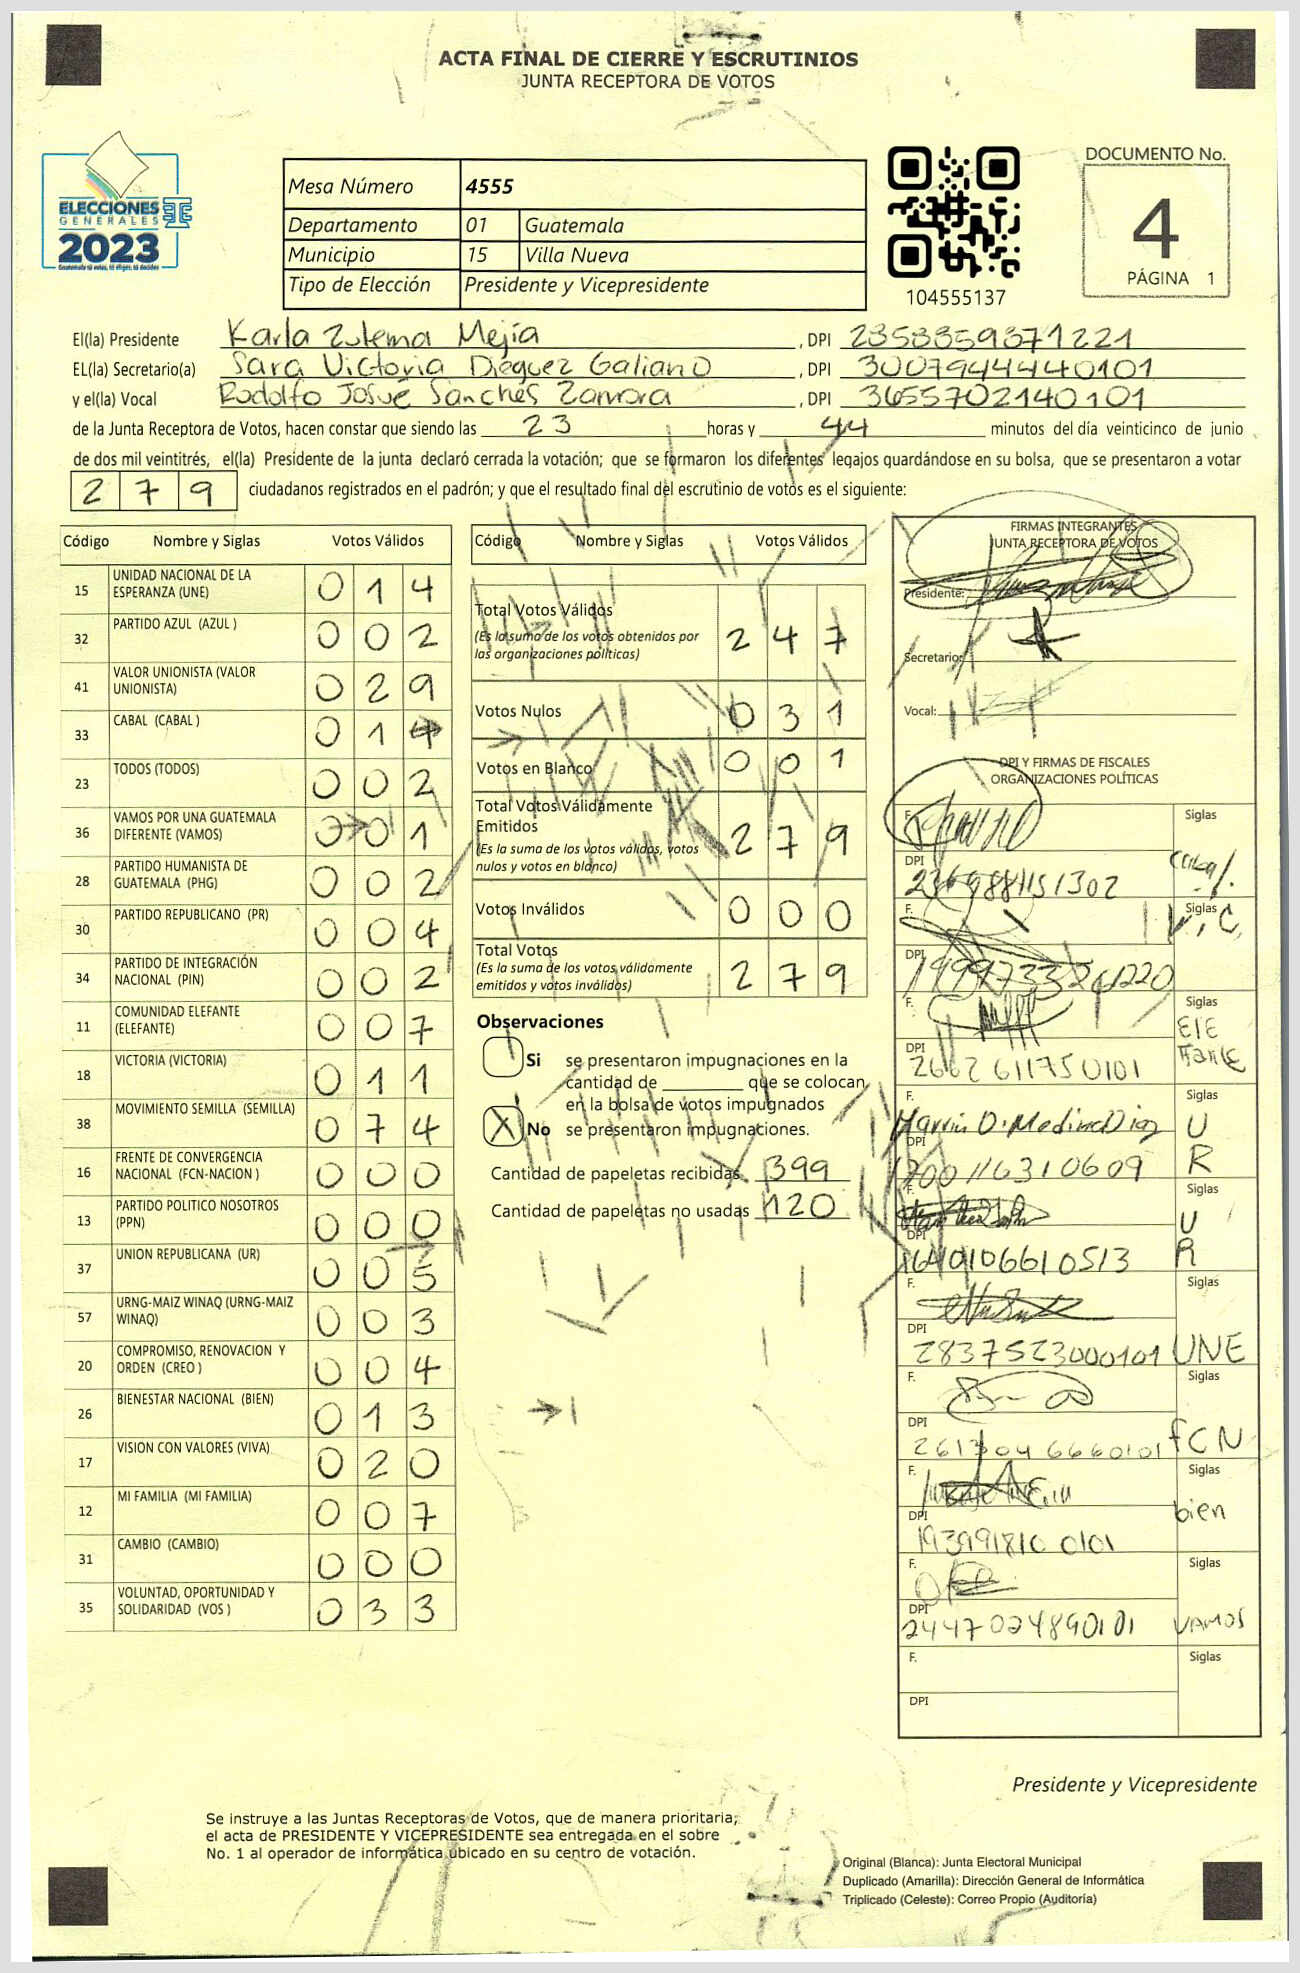 ACTA FINAL DE CIERRE Y ESCRUTINIOS
JUNTA RECEPTORA DE VOTOS
ELECCIONES
GENERALES
2023
Guatemala tú votas, tú eliges, tú decides
Mesa Número 4555
Departamento 01 Guatemala
Municipio 15 Villa Nueva
Tipo de Elección Presidente y Vicepresidente
104555137
DOCUMENTO No.
4
PÁGINA 1
El(la) Presidente Karla Zulema Mejía, DPI 2358359371221
EL(la) Secretario(a) Sara Victoria Dieguez Galiano, DPI 3007944440101
y el(la) Vocal Rodolfo Josué Sanches Zamora, DPI 3655702140101
de la Junta Receptora de Votos, hacen constar que siendo las 23 horas y 44 minutos del día veinticinco de junio
de dos mil veintitrés, el(la) Presidente de la junta declaró cerrada la votación; que se formaron los diferentes legajos guardándose en su bolsa, que se presentaron a votar
279 ciudadanos registrados en el padrón; y que el resultado final del escrutinio de votos es el siguiente:
Código Nombre y Siglas Votos Válidos
15 UNIDAD NACIONAL DE LA ESPERANZA (UNE) 014
32 PARTIDO AZUL (AZUL ) 002
41 VALOR UNIONISTA (VALOR UNIONISTA) 029
33 CABAL (CABAL ) 014
23 TODOS (TODOS) 002
36 VAMOS POR UNA GUATEMALA DIFERENTE (VAMOS) 001
28 PARTIDO HUMANISTA DE GUATEMALA (PHG) 002
30 PARTIDO REPUBLICANO (PR) 004
34 PARTIDO DE INTEGRACIÓN NACIONAL (PIN) 002
11 COMUNIDAD ELEFANTE (ELEFANTE) 007
18 VICTORIA (VICTORIA) 011
38 MOVIMIENTO SEMILLA (SEMILLA) 074
16 FRENTE DE CONVERGENCIA NACIONAL (FCN-NACION ) 000
13 PARTIDO POLITICO NOSOTROS (PPN) 000
37 UNION REPUBLICANA (UR) 005
57 URNG-MAIZ WINAQ (URNG-MAIZ WINAQ) 003
20 COMPROMISO, RENOVACION Y ORDEN (CREO ) 004
26 BIENESTAR NACIONAL (BIEN) 013
17 VISION CON VALORES (VIVA) 020
12 MI FAMILIA (MI FAMILIA) 007
31 CAMBIO (CAMBIO) 000
35 VOLUNTAD, OPORTUNIDAD Y SOLIDARIDAD (VOS ) 033
Código Nombre y Siglas Votos Válidos
Total Votos Válidos 247
(Es la suma de los votos obtenidos por
las organizaciones políticas)
Votos Nulos 031
Votos en Blanco 001
Total Votos Válidamente
Emitidos 279
(Es la suma de los votos válidos, votos
nulos y votos en blanco)
Votos Inválidos 000
Total Votos 279
(Es la suma de los votos válidamente
emitidos y votos inválidos)
Observaciones
Si se presentaron impugnaciones en la
cantidad de ________ que se colocan
en la bolsa de votos impugnados
X No se presentaron impugnaciones.
Cantidad de papeletas recibidas 399
Cantidad de papeletas no usadas 120
FIRMAS INTEGRANTES
JUNTA RECEPTORA DE VOTOS
Presidente:
Secretario:
Vocal:
DPI Y FIRMAS DE FISCALES
ORGANIZACIONES POLÍTICAS
F. Siglas
DPI Cabal.
F. Siglas V.C.
DPI
F. Siglas
DPI 2662611750101 ElE
FANTE
F. Marvin O. Medina Diaz Siglas U
DPI 1700116310609 R
F. Siglas U
DPI 1640106610513 R
F. Siglas
DPI 2837523000101 UNE
F. Siglas
DPI 2613046660101 fCN
F. Siglas
DPI 1939918100101 bien
F. Siglas
DPI 2447024890101 VAMOS
F. Siglas
DPI
Presidente y Vicepresidente
Se instruye a las Juntas Receptoras de Votos, que de manera prioritaria,
el acta de PRESIDENTE Y VICEPRESIDENTE sea entregada en el sobre
No. 1 al operador de informática ubicado en su centro de votación.
Original (Blanca): Junta Electoral Municipal
Duplicado (Amarilla): Dirección General de Informática
Triplicado (Celeste): Correo Propio (Auditoría)